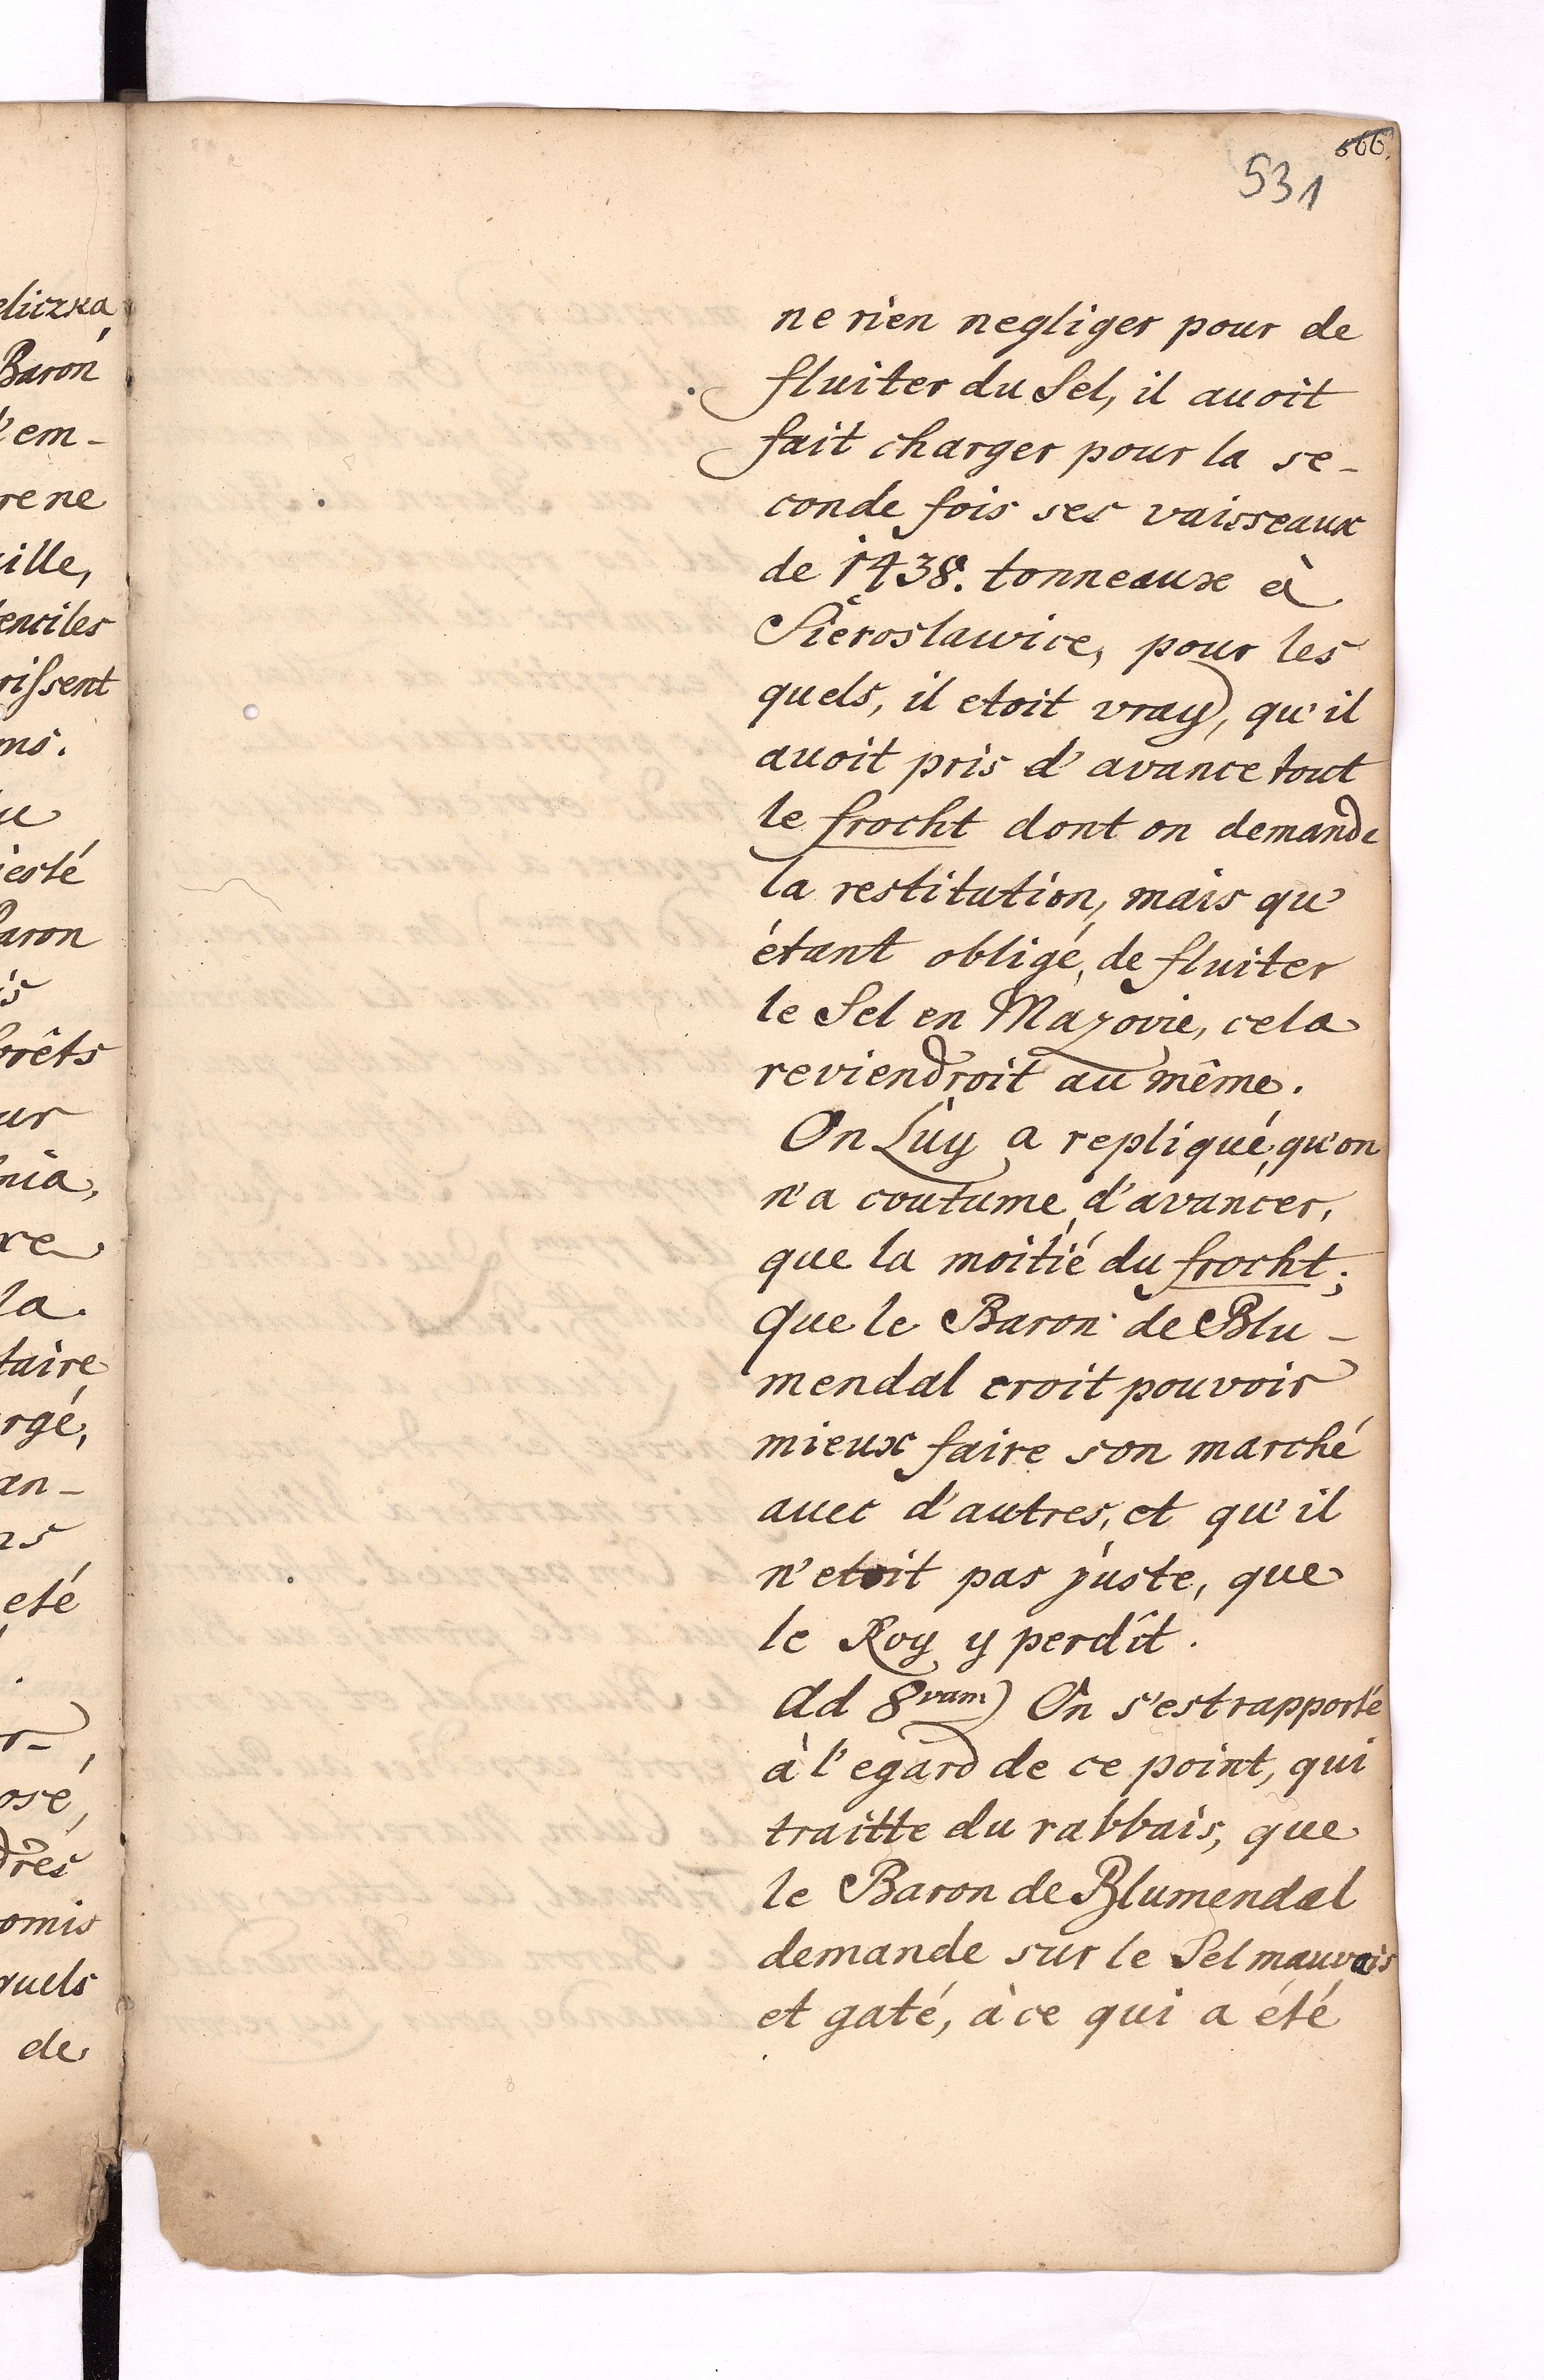 eliczka
Baron
'em-
rene
ille,
tenciles
rissent
ms.
u
iesté
Baron
is
forêts
ur
nia,
re
la.
taire
rgé,
an-
ns
eté
r-
osé,
dres
omis
quels
de
566.
531
ne rien negliger pour de
fluiter du Sel, il avoit
fait charger pour la se-
conde fois ses vaisseaux
de 1438. tonneaux à
Sieroslawice, pour les
quels, il etoit vray, qu'il
avoit pris d'avance tout
le frocht dont on demande
la restitution, mais qu'
étant obligé, de fluiter
le Sel en Mazovie, cela
reviendroit au même.
On Luy a repliqué, qu'on
n'a coutume, d'avancer,
que la moitié du frocht;
que le Baron de Blu-
mendal croit pouvoir
mieux faire son marché
avec d'autres, et qu'il
n'etoit pas juste, que
le Roy y perdît.
Ad 8vam) On s'est rapporté
à l'egard de ce point, qui
traitte du rabbais, que
le Baron de Blumendal
demande sur le Sel mauvais
et gaté, à ce qui a été